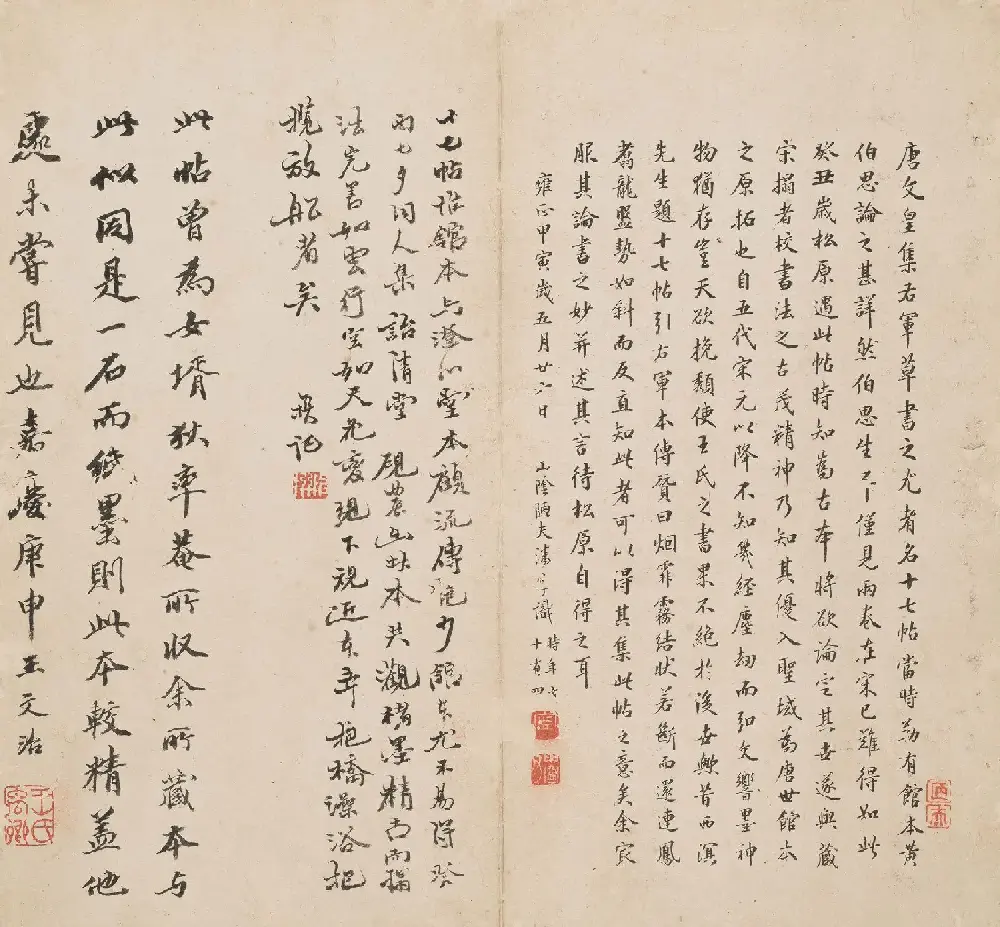 唐文皇集右軍草書之尤者名十七帖當時勒有館本黃
伯思論之甚詳然伯思生平僅見兩卷在宋已難得如此
癸丑歲松原遇此帖時知為古本將欲論定其世遂與藏
宋搨者校書法之古茂精神乃知其優入聖域為唐世館本
之原拓也自五代宋元以降不知幾經塵劫而紉文響墨神
物猶存豈天欲挽頹使王氏之書果不絕於後世歟昔西溟
先生題十七帖引右軍本傳贊曰烟霏霧結狀若斷而還連鳳
翥龍盤勢如斜而反直知此者可以得其集此帖之意矣余宸
服其論書之妙并述其言待松原自得之耳
雍正甲寅歲五月廿六日
山陰 夫潘 識
時年七
十有四
十七帖推館本与澄心堂本顧流傳絕少館本尤不易得
雨七夕同人集詒清堂 觀農 本共觀楮墨精古而搨
法完善如雲行空如天花變現下視近東 抱橋澡浴把
攬放船者矣
記
此帖曾為女壻狄率菴所收余所藏本与
此似同是一石而紙墨則此本較精蓋他
處未嘗見也嘉慶庚申王文治
王氏禹卿